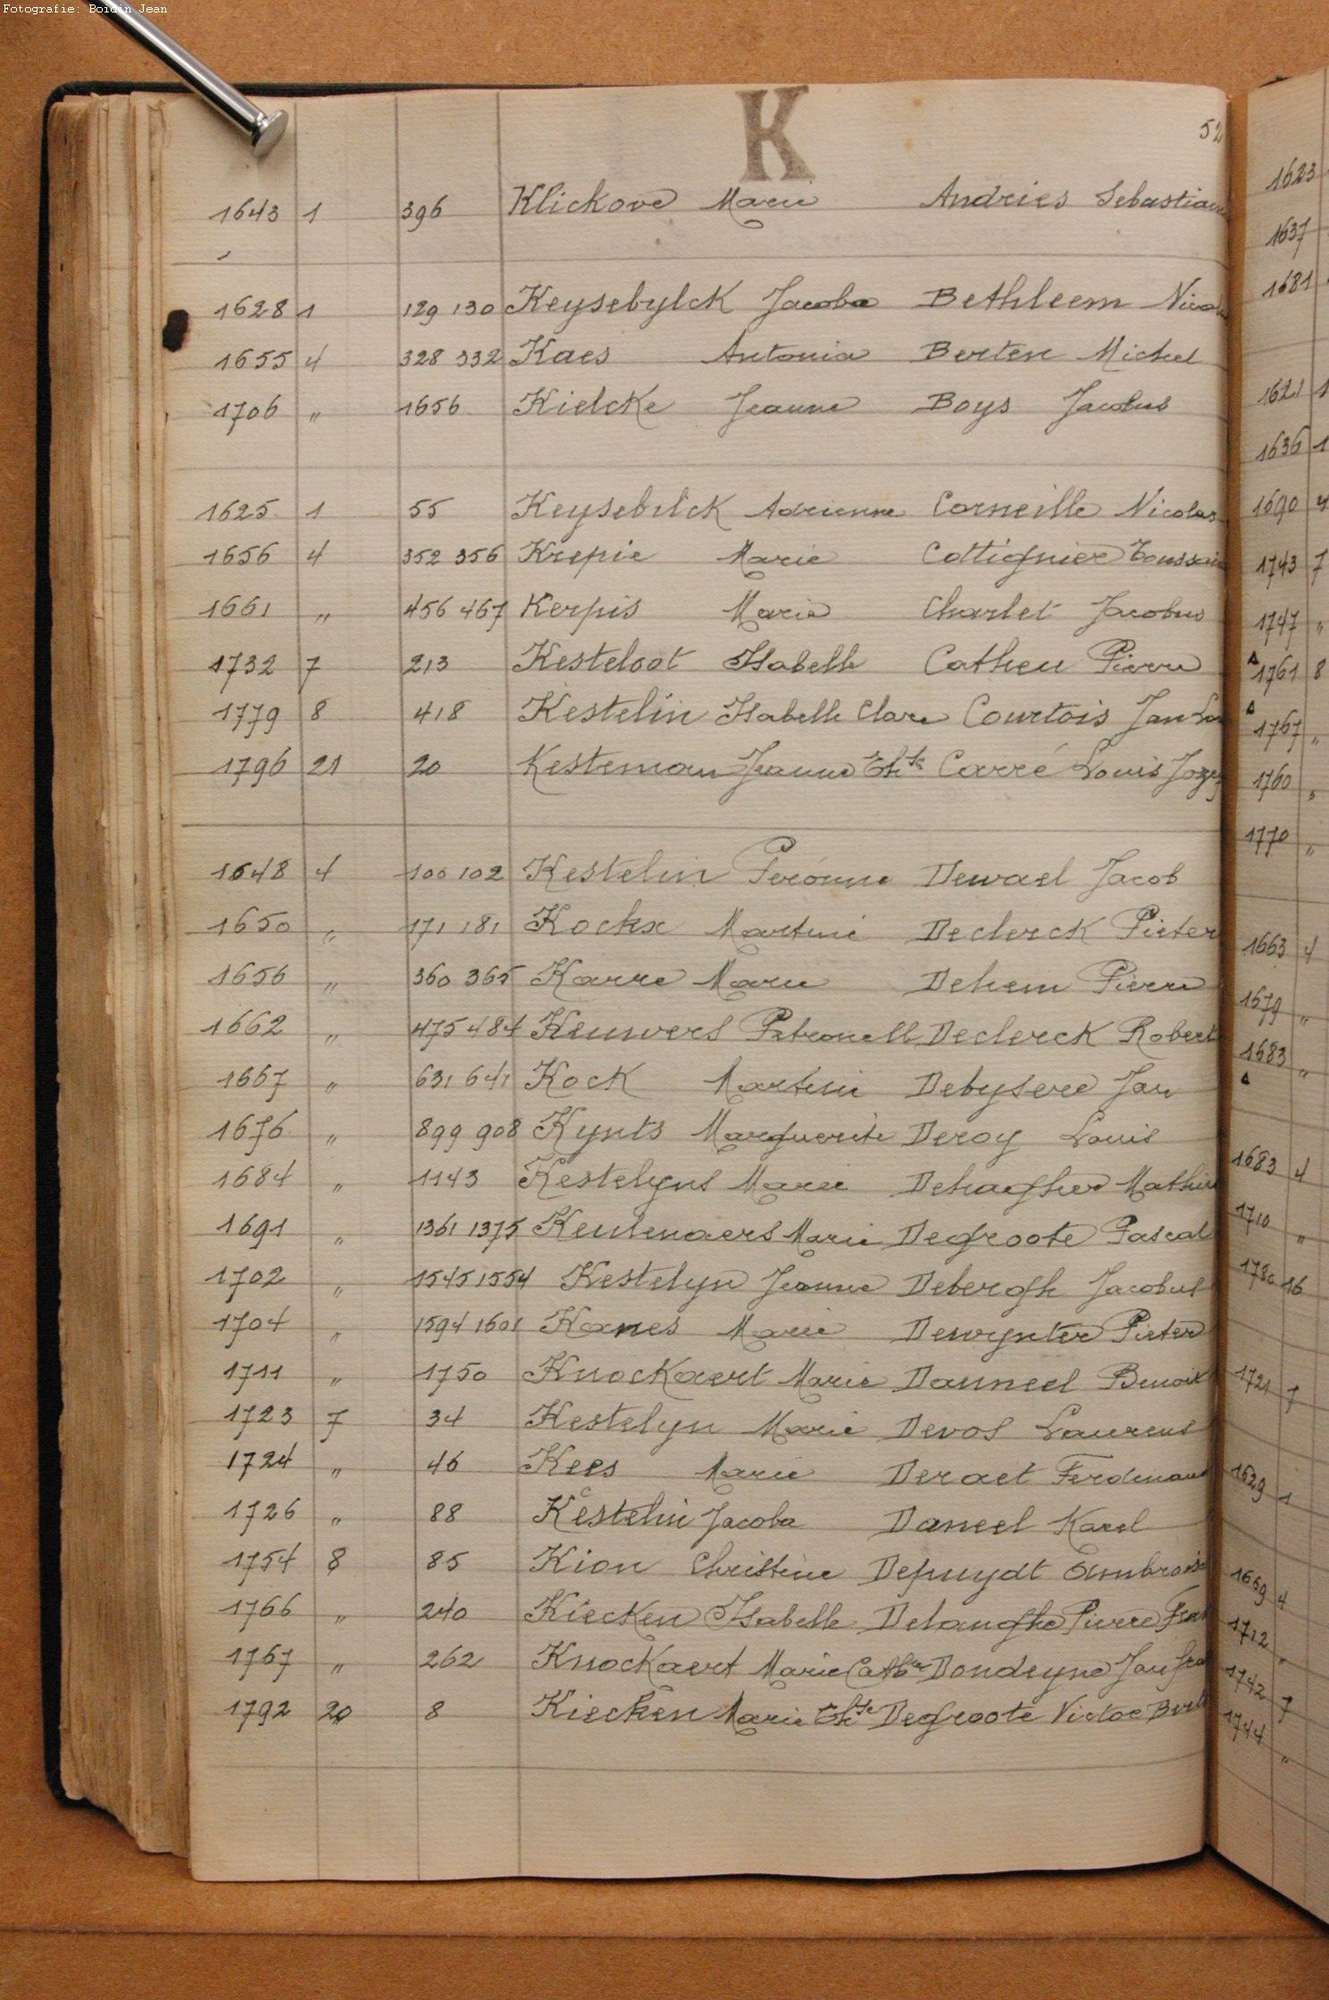 Fotografie: Boidin Jean
K
52
1643 1 396 Klickove Marie Andries Sebastiaan
1628 1 129 130 Keysebylck Jacoba Bethleem Nicol
1655 4 328 332 Kaes Antonia Berten Michel
1706 " 1656 Kielcke Jeanne Boys Jacobus
1625 1 55 Keysebilck Adrienne Corneille Nicolas
1656 4 352 356 Krepie Marie Cottignier Toussain
1661 " 456 467 Kerpis Marie Charlet Jacobus
1732 7 213 Kesteloot Isabelle Catheu Pierre
1779 8 418 Kestelin Isabelle Clare Courtois Jan
1796 21 20 Kesteman Jeanne Carré Louis Jozef
1648 4 100 102 Kestelin Peronne Dewael Jacob
1650 " 171 181 Kockx Martine Declerck Pieter
1656 " 360 365 Karre Marie Dehem Pierre
1662 " 475 484 Keuwers Petronell Declerck Robert
1667 " 631 641 Kock Martini Debysere Jan
1676 " 899 908 Kynts Marguerite Deroy Louis
1684 " 1143 Kestelyns Marie Dehaghe Mathieu
1691 " 1361 1375 Keulenaers Marie Degroote Pascal
1702 " 1545 1554 Kestelyn Jeanne Debergh Jacobus
1704 " 1594 1601 Kanes Marie Dewynter Pieter
1711 " 1750 Knockaert Marie Danneel Benoit
1723 7 34 Kestelyn Marie Devos Laurens
1724 " 46 Kees Marie Deraet Ferdinand
1726 " 88 Kestelin Jacoba Daneel Karel
1754 8 85 Kion Christine Depuydt Ambroise
1766 " 240 Kiecken Isabelle Delanghe Pierre
1767 " 262 Knockaert Marie Cathne Dondeyne Jan
1792 20 8 Kiecken Marie Degroote Victor
1623
1637
1681
1621 1
1636 1
1690 4
1743 7
1747 "
1761 8
1767 "
1760 "
1770 "
1663 4
1679 "
1683 "
1683 4
1710 "
178 16
1721 7
1629 1
1669 4
1712 "
1742 7
1744 "